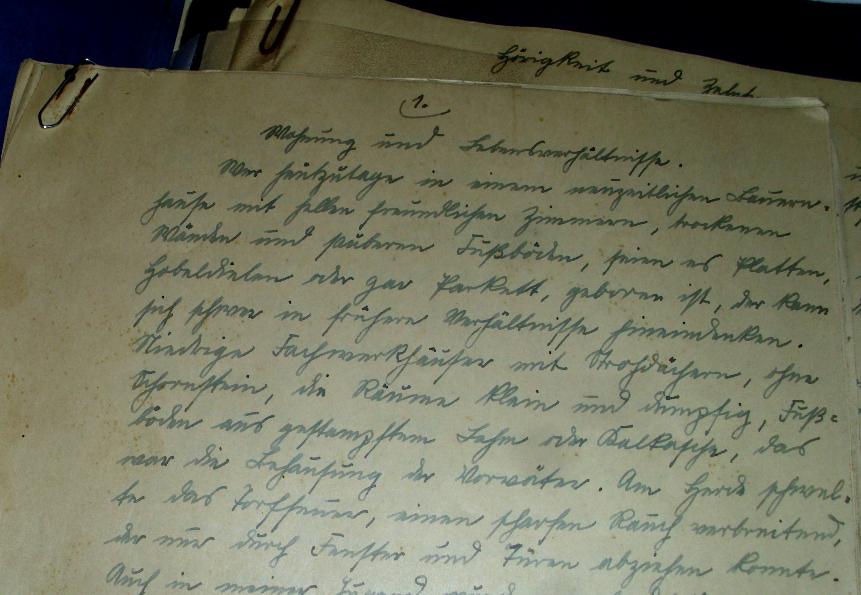 Hörigkeit und Zehnt
1.
Wohnung und Lebensverhältnisse.
Wer heutzutage in einem neuzeitlichen Bauern-
hause mit hellen freundlichen Zimmern, trockenen
Wänden und sauberen Fußböden, seien es Platten,
Hobeldielen oder gar Parkett, geboren ist, der kann
sich schwer in frühere Verhältnisse hineindenken.
Niedrige Fachwerkhäuser mit Strohdächern, ohne
Schornstein, die Räume klein und dumpfig, Fuß-
böden aus gestampftem Lehm oder Kalkasche, das
war die Behausung der Vorväter. Am Herde schwel-
te das Torffeuer, einen scharfen Rauch verbreitend,
der nur durch Fenster und Türen abziehen konnte.
Auch in meiner Jugend